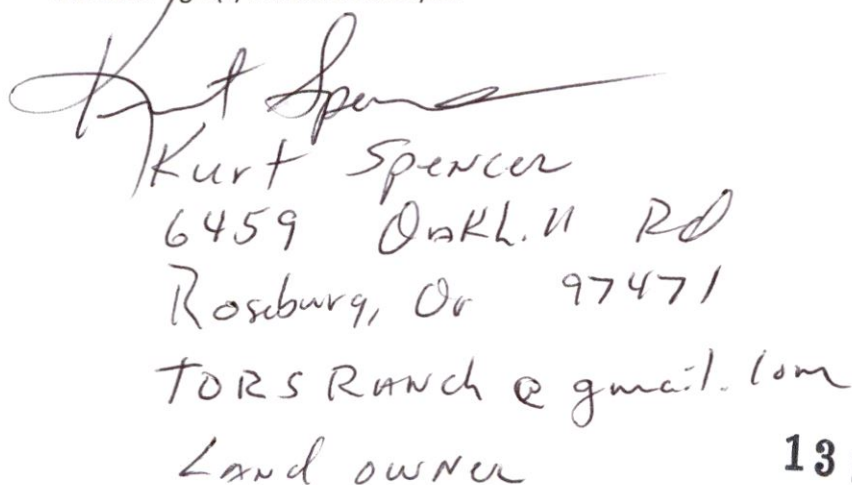 Kurt Spencer
Kurt Spencer
6459 Oakhill Rd
Roseburg, Or 97471
TORSRANch@gmail.com
LANd OWNer
13